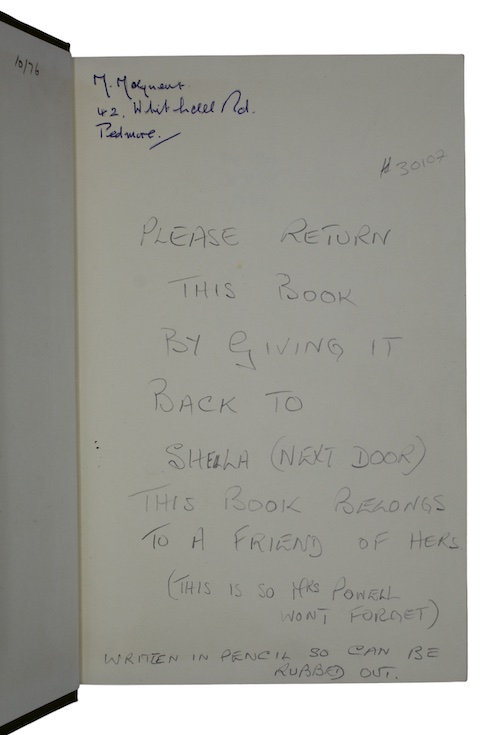 10/76
M. Molyneux.
42. Whitehall Rd.
Pedmore.
#30107
PLEASE RETURN
THIS BOOK
BY GIVING IT
BACK TO
SHEILA (NEXT DOOR)
THIS BOOK BELONGS
TO A FRIEND OF HERS
(THIS IS SO MRS POWELL
WONT FORGET)
WRITTEN IN PENCIL SO CAN BE
RUBBED OUT.